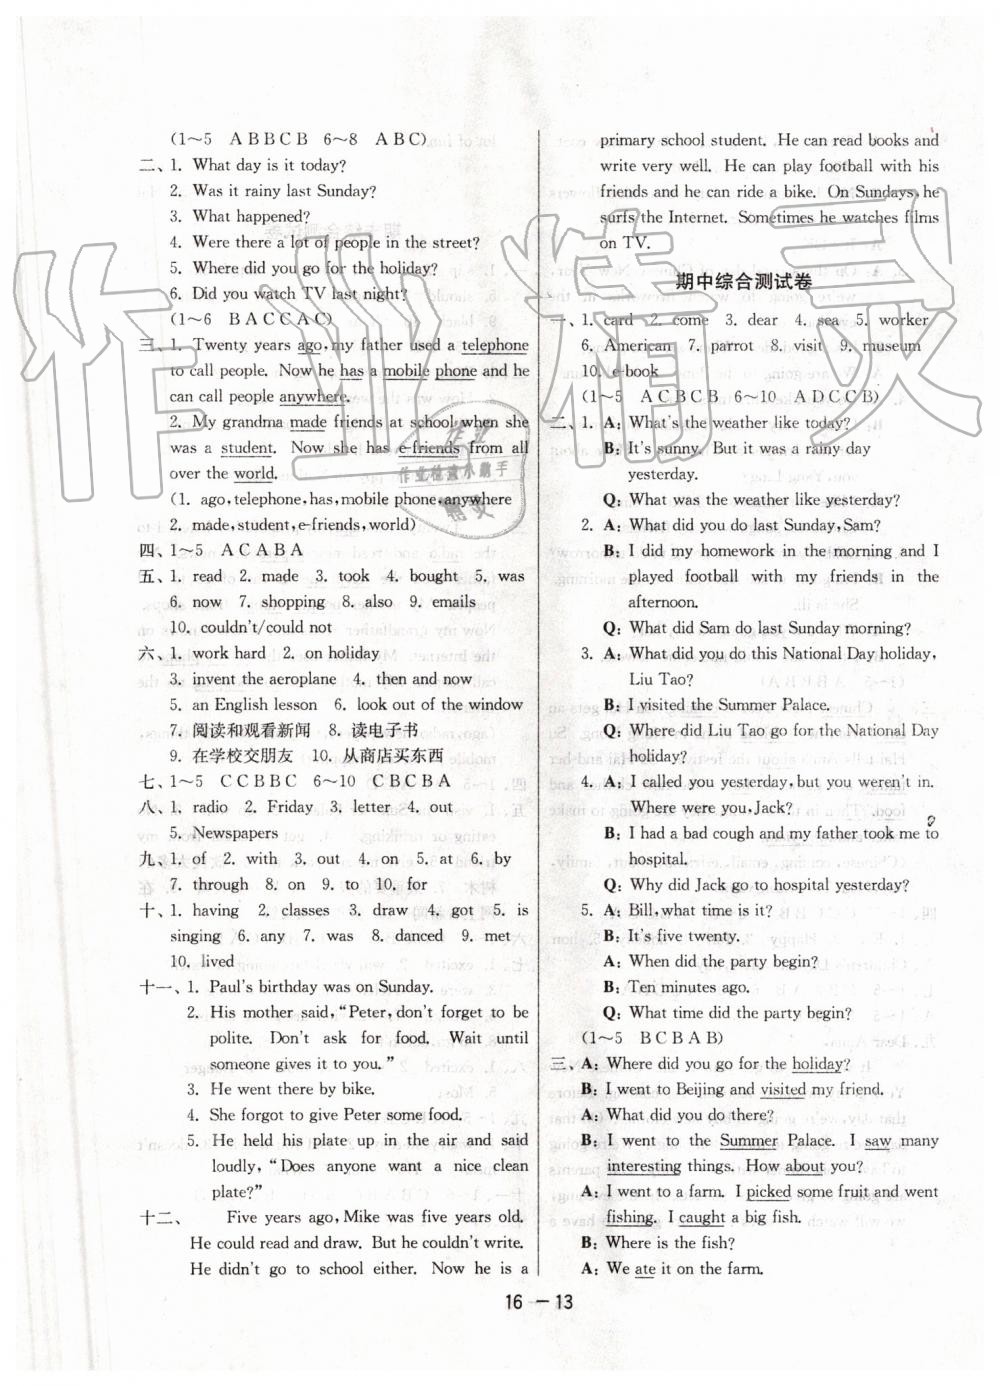 (1~5 A B B C B 6~8 A B C)
二、1. What day is it today?
2. Was it rainy last Sunday?
3. What happened?
4. Were there a lot of people in the street?
5. Where did you go for the holiday?
6. Did you watch TV last night?
(1~6 B A C C A C)
三、1. Twenty years ago, my father used a telephone
to call people. Now he has a mobile phone and he
can call people anywhere.
2. My grandma made friends at school when she
was a student. Now she has e-friends from all
over the world.
(1. ago, telephone, has, mobile phone, anywhere
2. made, student, e-friends, world)
四、1~5 A C A B A
五、1. read 2. made 3. took 4. bought 5. was
6. now 7. shopping 8. also 9. emails
10. couldn't/could not
六、1. work hard 2. on holiday
3. invent the aeroplane 4. then and now
5. an English lesson 6. look out of the window
7. 阅读和观看新闻 8. 读电子书
9. 在学校交朋友 10. 从商店买东西
七、1~5 C C B B C 6~10 C B C B A
八、1. radio 2. Friday 3. letter 4. out
5. Newspapers
九、1. of 2. with 3. out 4. on 5. at 6. by
7. through 8. on 9. to 10. for
十、1. having 2. classes 3. draw 4. got 5. is
singing 6. any 7. was 8. danced 9. met
10. lived
十一、1. Paul's birthday was on Sunday.
2. His mother said, "Peter, don't forget to be
polite. Don't ask for food. Wait until
someone gives it to you."
3. He went there by bike.
4. She forgot to give Peter some food.
5. He held his plate up in the air and said
loudly, "Does anyone want a nice clean
plate?"
十二、 Five years ago, Mike was five years old.
He could read and draw. But he couldn't write.
He didn't go to school either. Now he is a
primary school student. He can read books and
write very well. He can play football with his
friends and he can ride a bike. On Sundays, he
surfs the Internet. Sometimes he watches films
on TV.
期中综合测试卷
一、1. card 2. come 3. dear 4. sea 5. worker
6. American 7. parrot 8. visit 9. museum
10. e-book
(1~5 A C B C B 6~10 A D C C B)
二、1. A: What's the weather like today?
B: It's sunny. But it was a rainy day
yesterday.
Q: What was the weather like yesterday?
2. A: What did you do last Sunday, Sam?
B: I did my homework in the morning and I
played football with my friends in the
afternoon.
Q: What did Sam do last Sunday morning?
3. A: What did you do this National Day holiday,
Liu Tao?
B: I visited the Summer Palace.
Q: Where did Liu Tao go for the National Day
holiday?
4. A: I called you yesterday, but you weren't in.
Where were you, Jack?
B: I had a bad cough and my father took me to
hospital.
Q: Why did Jack go to hospital yesterday?
5. A: Bill, what time is it?
B: It's five twenty.
A: When did the party begin?
B: Ten minutes ago.
Q: What time did the party begin?
(1~5 B C B A B)
三、A: Where did you go for the holiday?
B: I went to Beijing and visited my friend.
A: What did you do there?
B: I went to the Summer Palace. I saw many
interesting things. How about you?
A: I went to a farm. I picked some fruit and went
fishing. I caught a big fish.
B: Where is the fish?
A: We ate it on the farm.
16 — 13
作业精灵
作业
作业检查小助手
精灵